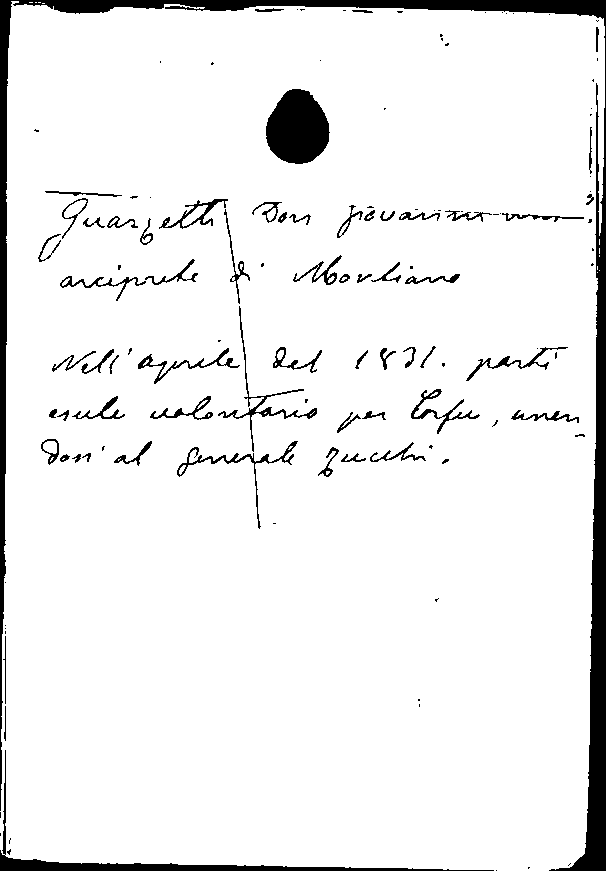 Guarzetti Don Giovanni
arciprete di Montiano
Nell' aprile del 1831. partì
esule volontario per Corfu, unen-
dosi al generale Zucchi.